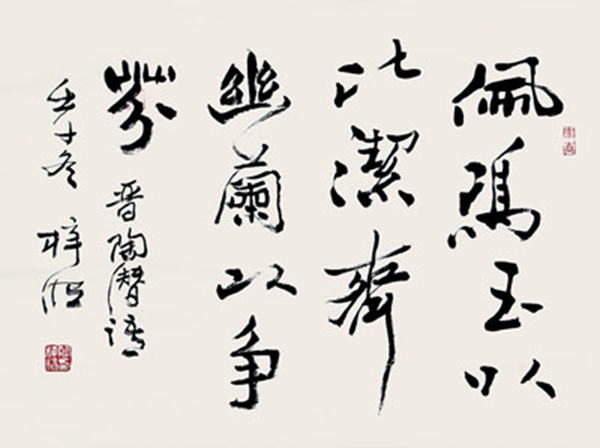 佩鳴玉以
比潔齊
幽蘭以争
芬 晋陶潛語
壬午冬 梓